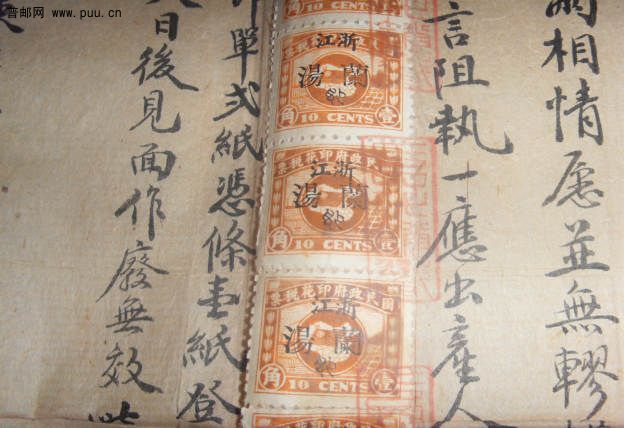 普邮网 www.puu.cn
相情愿並無轇
言阻執一應出產人
10 CENTS
浙江
蘭湯
角 10 CENTS 壹
國民政府印花稅票
浙江
蘭湯
角 10 CENTS 壹
國民政府印花稅票
浙江
蘭湯
角 10 CENTS 壹
單弍紙憑條壹紙登
日後見面作廢無效